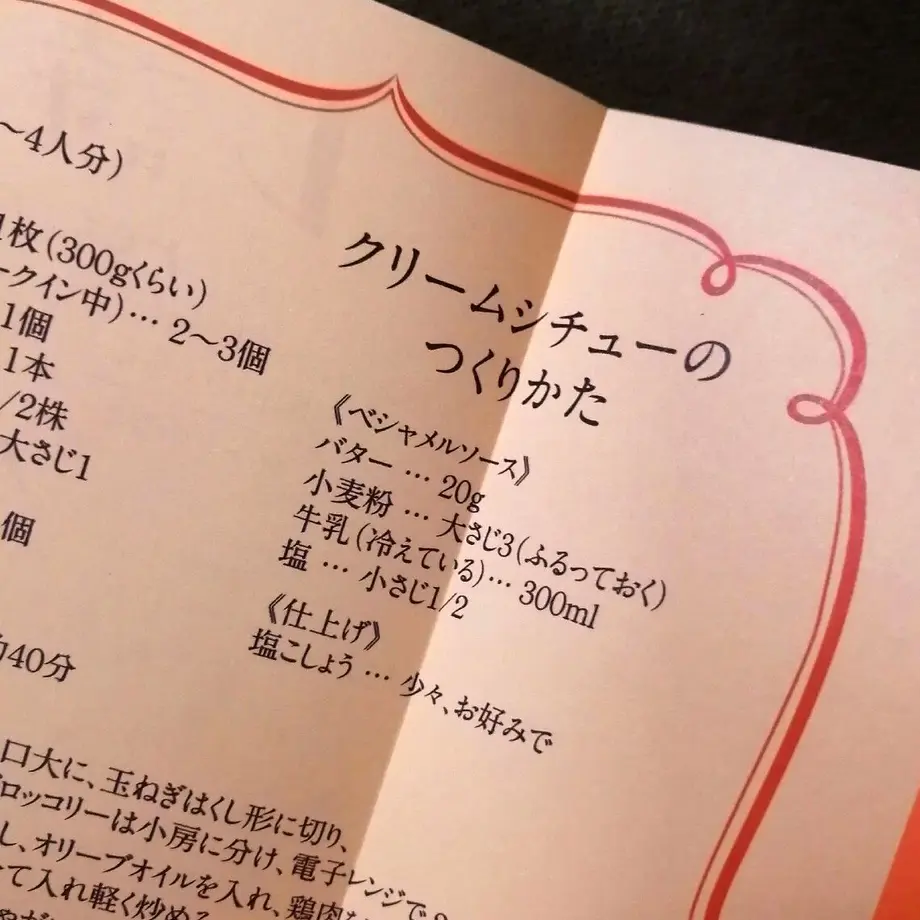 ～4人分）
1枚（300gくらい）
ークイン中）… 2～3個
1個
1本
/2株
大さじ1
個
40分
クリームシチューの
つくりかた
《ベシャメルソース》
バター … 20g
小麦粉 … 大さじ3（ふるっておく）
牛乳（冷えている）… 300ml
塩 … 小さじ1/2
《仕上げ》
塩こしょう … 少々、お好みで
口大に、玉ねぎはくし形に切り、
ロッコリーは小房に分け、電子レンジで
し、オリーブオイルを入れ、鶏肉
て入れ軽く炒める